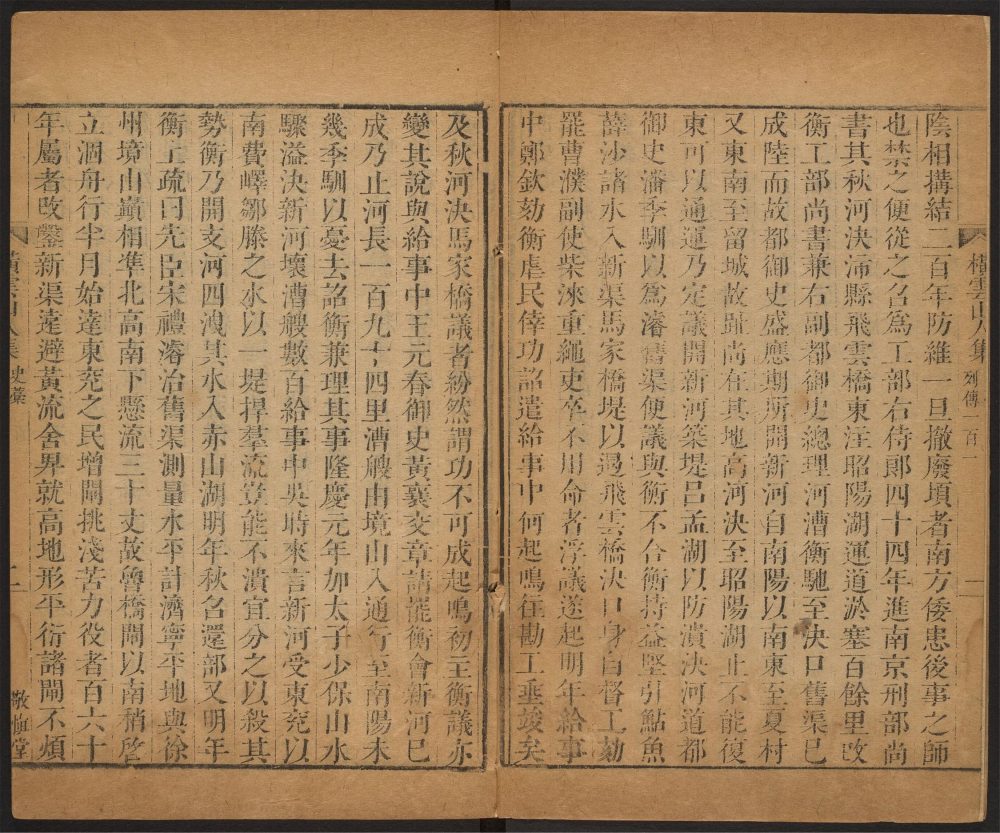 陰相搆結二百年防維一旦撤廢頃者南方倭患後事之師
也禁之便從之召爲工部右侍郎四十四年進南京刑部尚
書其秋河決沛縣飛雲橋東注昭陽湖運道淤塞百餘里改
衡工部尚書兼右副都御史總理河漕衡馳至決口舊渠已
成陸而故都御史盛應期所開新河自南陽以南東至夏村
又東南至留城故趾尚在其地高河決至昭陽湖止不能復
東可以通運乃定議開新河築堤呂孟湖以防潰決河道都
御史潘季馴以爲濬舊渠便議與衡不合衡持益堅引鮎魚
薛沙諸水入新渠馬家橋堤以遏飛雲橋決口身自督工劾
罷曹濮副使柴淶重繩吏卒不用命者浮議遂起明年給事
中鄭欽劾衡虐民倖功詔遣給事中何起鳴往勘工垂竣矣
橫雲山人集 列傳 百一
及秋河決馬家橋議者紛然謂功不可成起鳴初主衡議亦
變其說與給事中王元春御史黃襄交章請罷衡會新河已
成乃止河長一百九十四里漕艘由境山入通行至南陽未
幾季馴以憂去詔衡兼理其事隆慶元年加太子少保山水
驟溢決新河壞漕艘數百給事中吳時來言新河受東兗以
南費嶧鄒滕之水以一堤捍羣流豈能不潰宜分之以殺其
勢衡乃開支河四洩其水入赤山湖明年秋召還部又明年
衡上疏曰先臣宋禮濬治舊渠測量水平計濟寧平地與徐
州境山巔相準北高南下懸流三十丈故魯橋閘以南稍啓
立涸舟行半月始達東兗之民增閘挑淺苦力役者百六十
年屬者改鑿新渠遠避黃流舍卑就高地形平衍諸閘不煩
橫雲山人集 史藁 二 敬愼堂